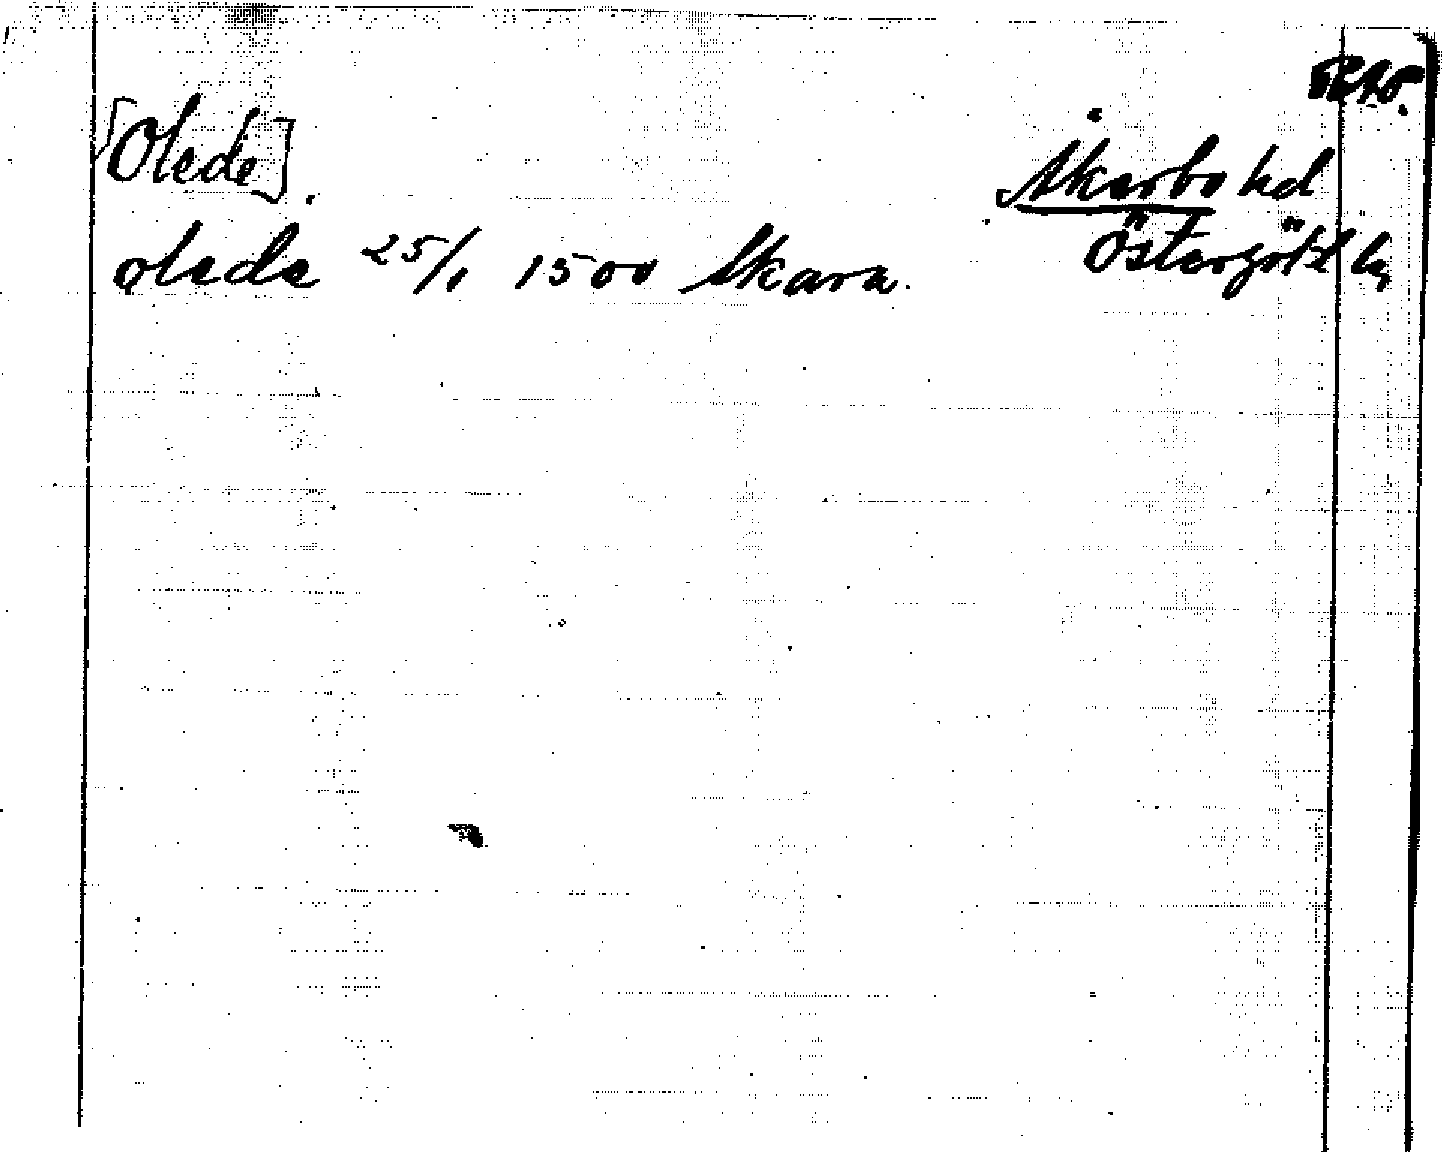 [Olede].
Åkerbo hd
Östergötl län
olede 25/1 1500 Skara.